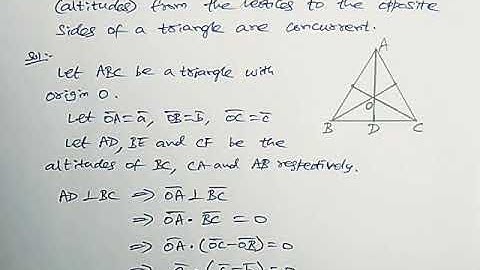 (altitudes) from the vertices to the opposite
sides of a triangle are concurrent.
Sol:-
Let ABC be a triangle with
origin O.
Let O̅A̅=a̅, O̅B̅=b̅, O̅C̅=c̅
Let AD, BE and CF be the
altitudes of BC, CA and AB respectively.
AD⊥BC ⇒ O̅A̅ ⊥ B̅C̅
⇒ O̅A̅ · B̅C̅ = 0
⇒ O̅A̅ · (O̅C̅-O̅B̅)=0
⇒ a̅ · (c̅-b̅)=0
A
O
B D C